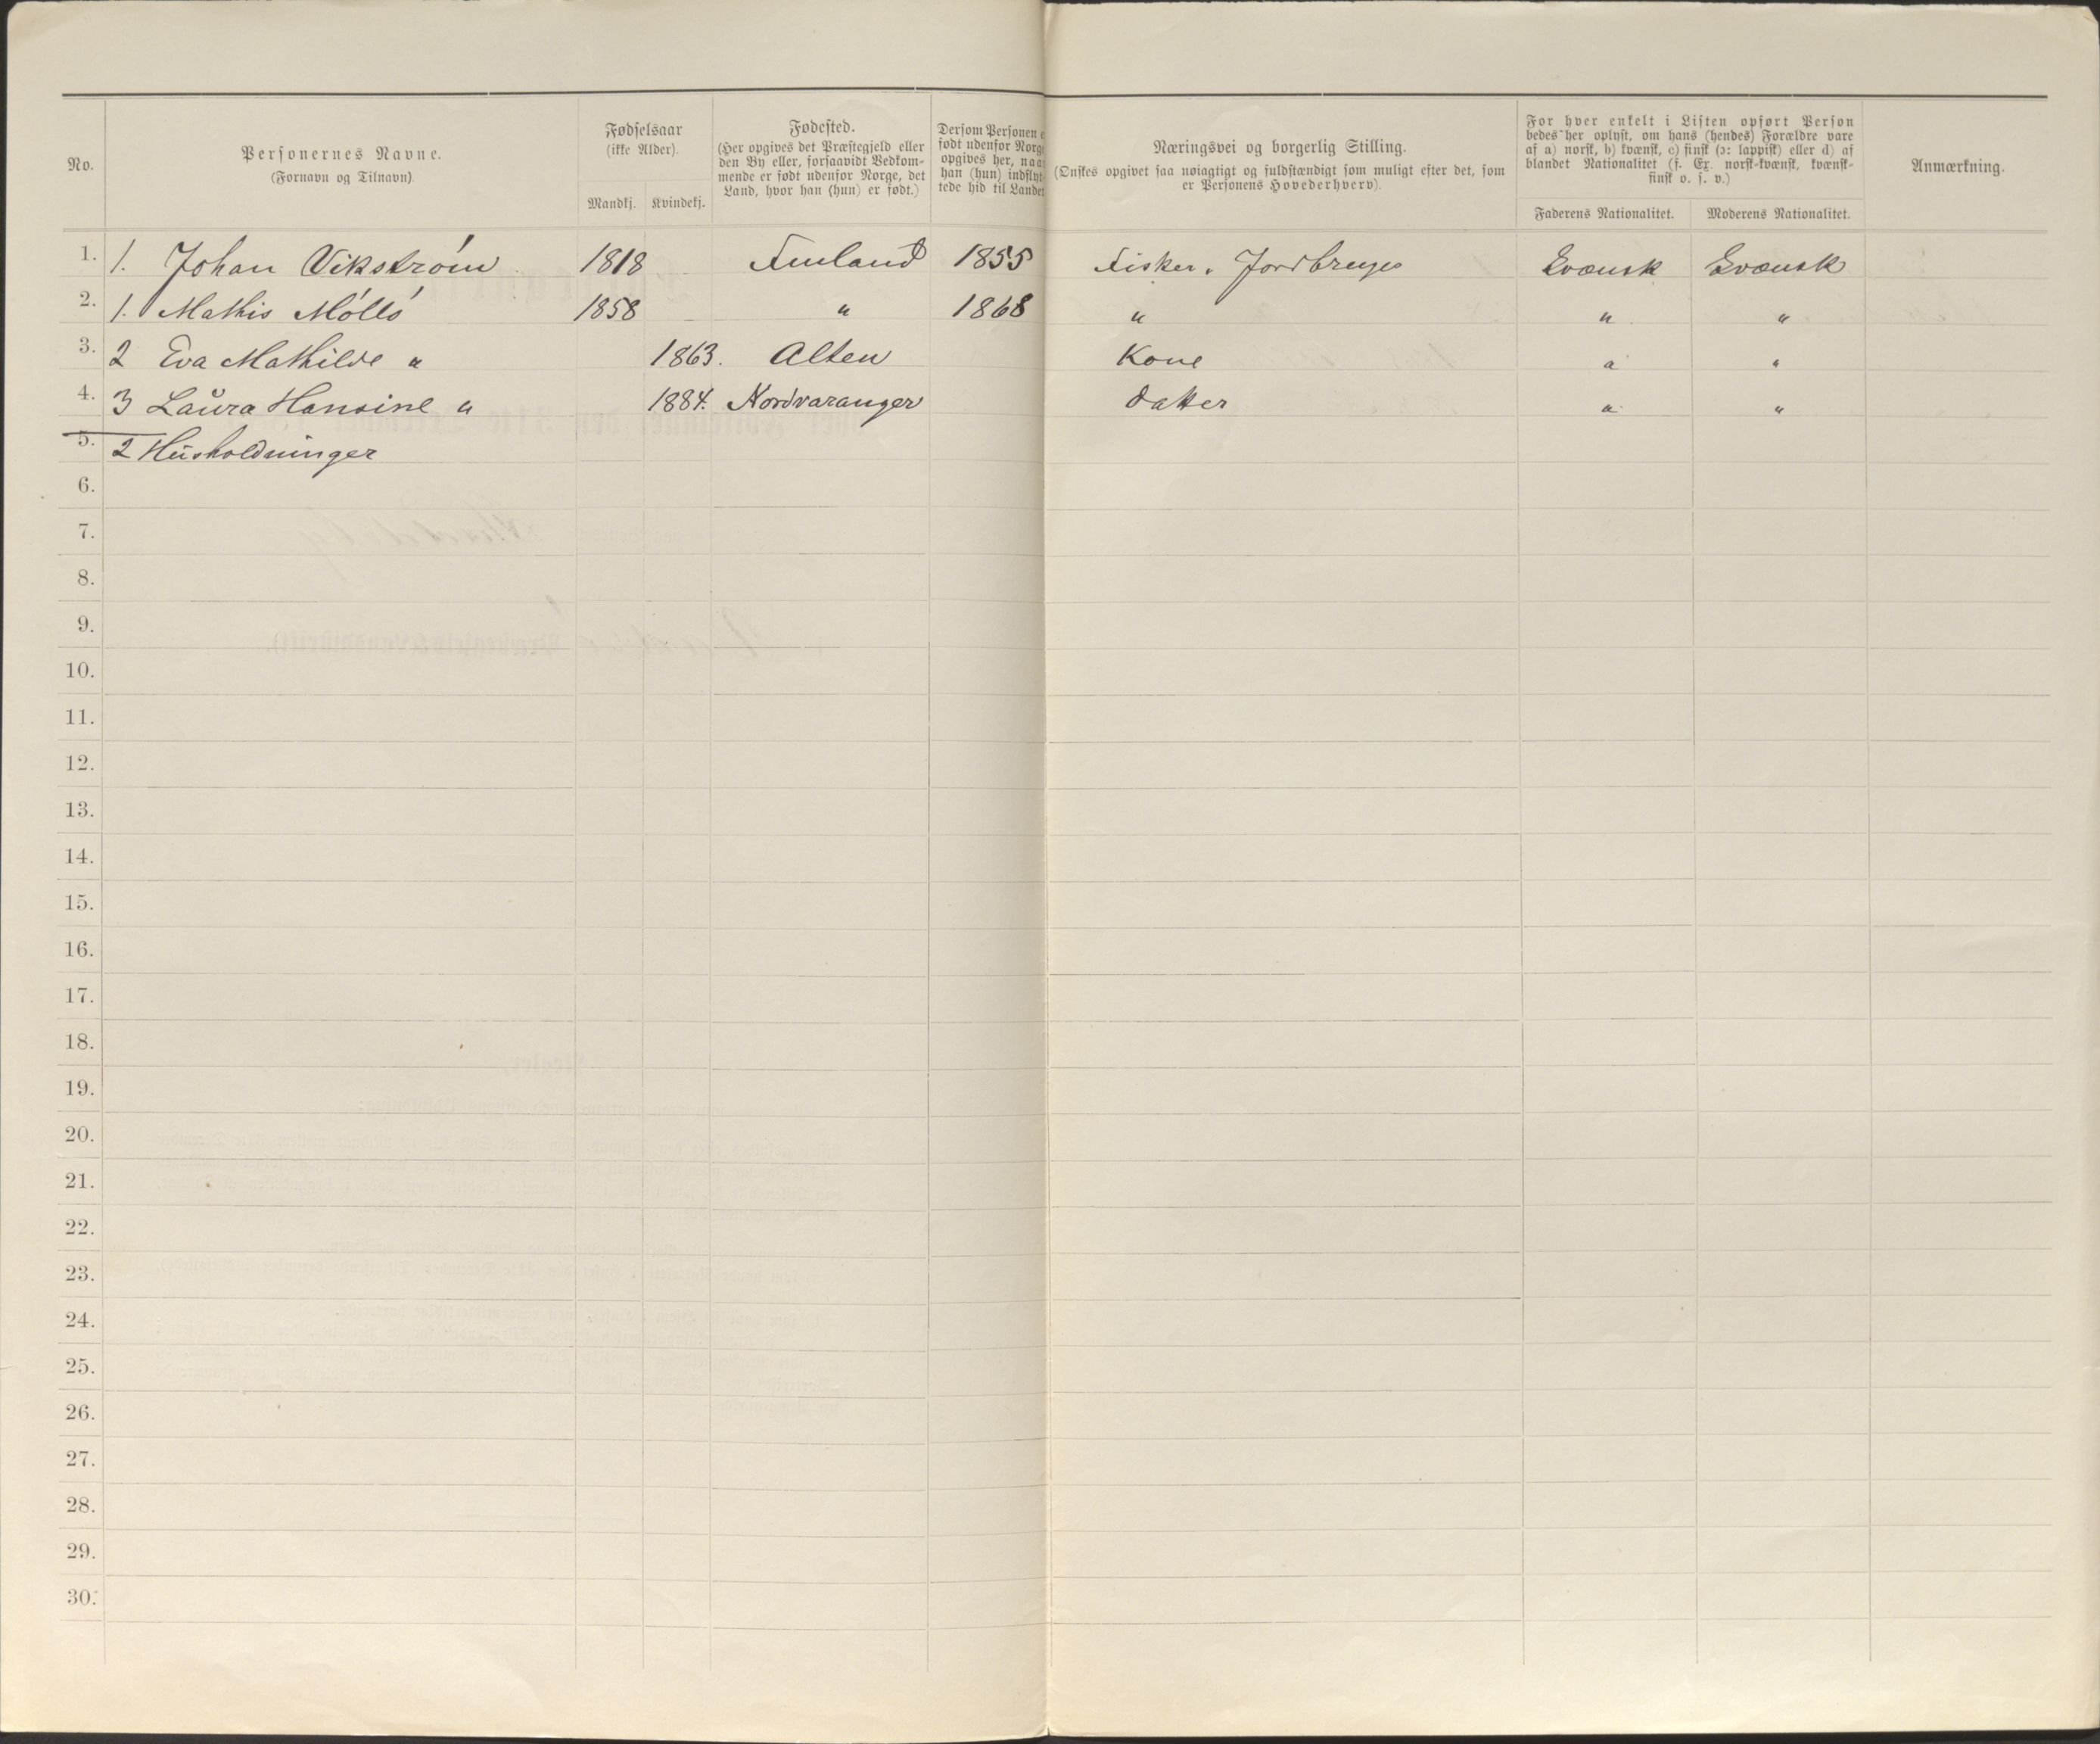 No.
Personernes Navne.
(Fornavn og Tilnavn).
Fødselsaar
(ikke Alder).
Mandkj. Kvindekj.
Fødested.
(Her opgives det Præstegjeld eller
den By eller, forsaavidt Vedkom-
mende er født udenfor Norge, det
Land, hvor han (hun) er født.)
Dersom Personen e
født udenfor Norg
opgives her, naa
han (hun) indflyt-
tede hid til Landet
Næringsvei og borgerlig Stilling.
(Ønskes opgivet saa nøiagtigt og fuldstændigt som muligt efter det, som
er Personens Hovederhverv).
For hver enkelt i Listen opført Person
bedes her oplyst, om hans (hendes) Forældre vare
af a) norsk, b) kvænsk, c) finsk (ɔ: lappisk) eller d) af
blandet Nationalitet (f. Ex. norsk-kvænsk, kvænsk-
finsk o. s. v.)
Faderens Nationalitet. Moderens Nationalitet.
Anmærkning.
1. 1. Johan Vikström 1818 Finland 1855 Fisker. Jordbruger Qvænsk Qvænsk
2. 1. Mathis Mölló 1858 " 1868 " " "
3. 2 Eva Mathilde " 1863. Alten Kone " "
4. 3 Laura Hansine " 1884. Nordvaranger Datter " "
5. 2 Husholdninger
6.
7.
8.
9.
10.
11.
12.
13.
14.
15.
16.
17.
18.
19.
20.
21.
22.
23.
24.
25.
26.
27.
28.
29.
30.